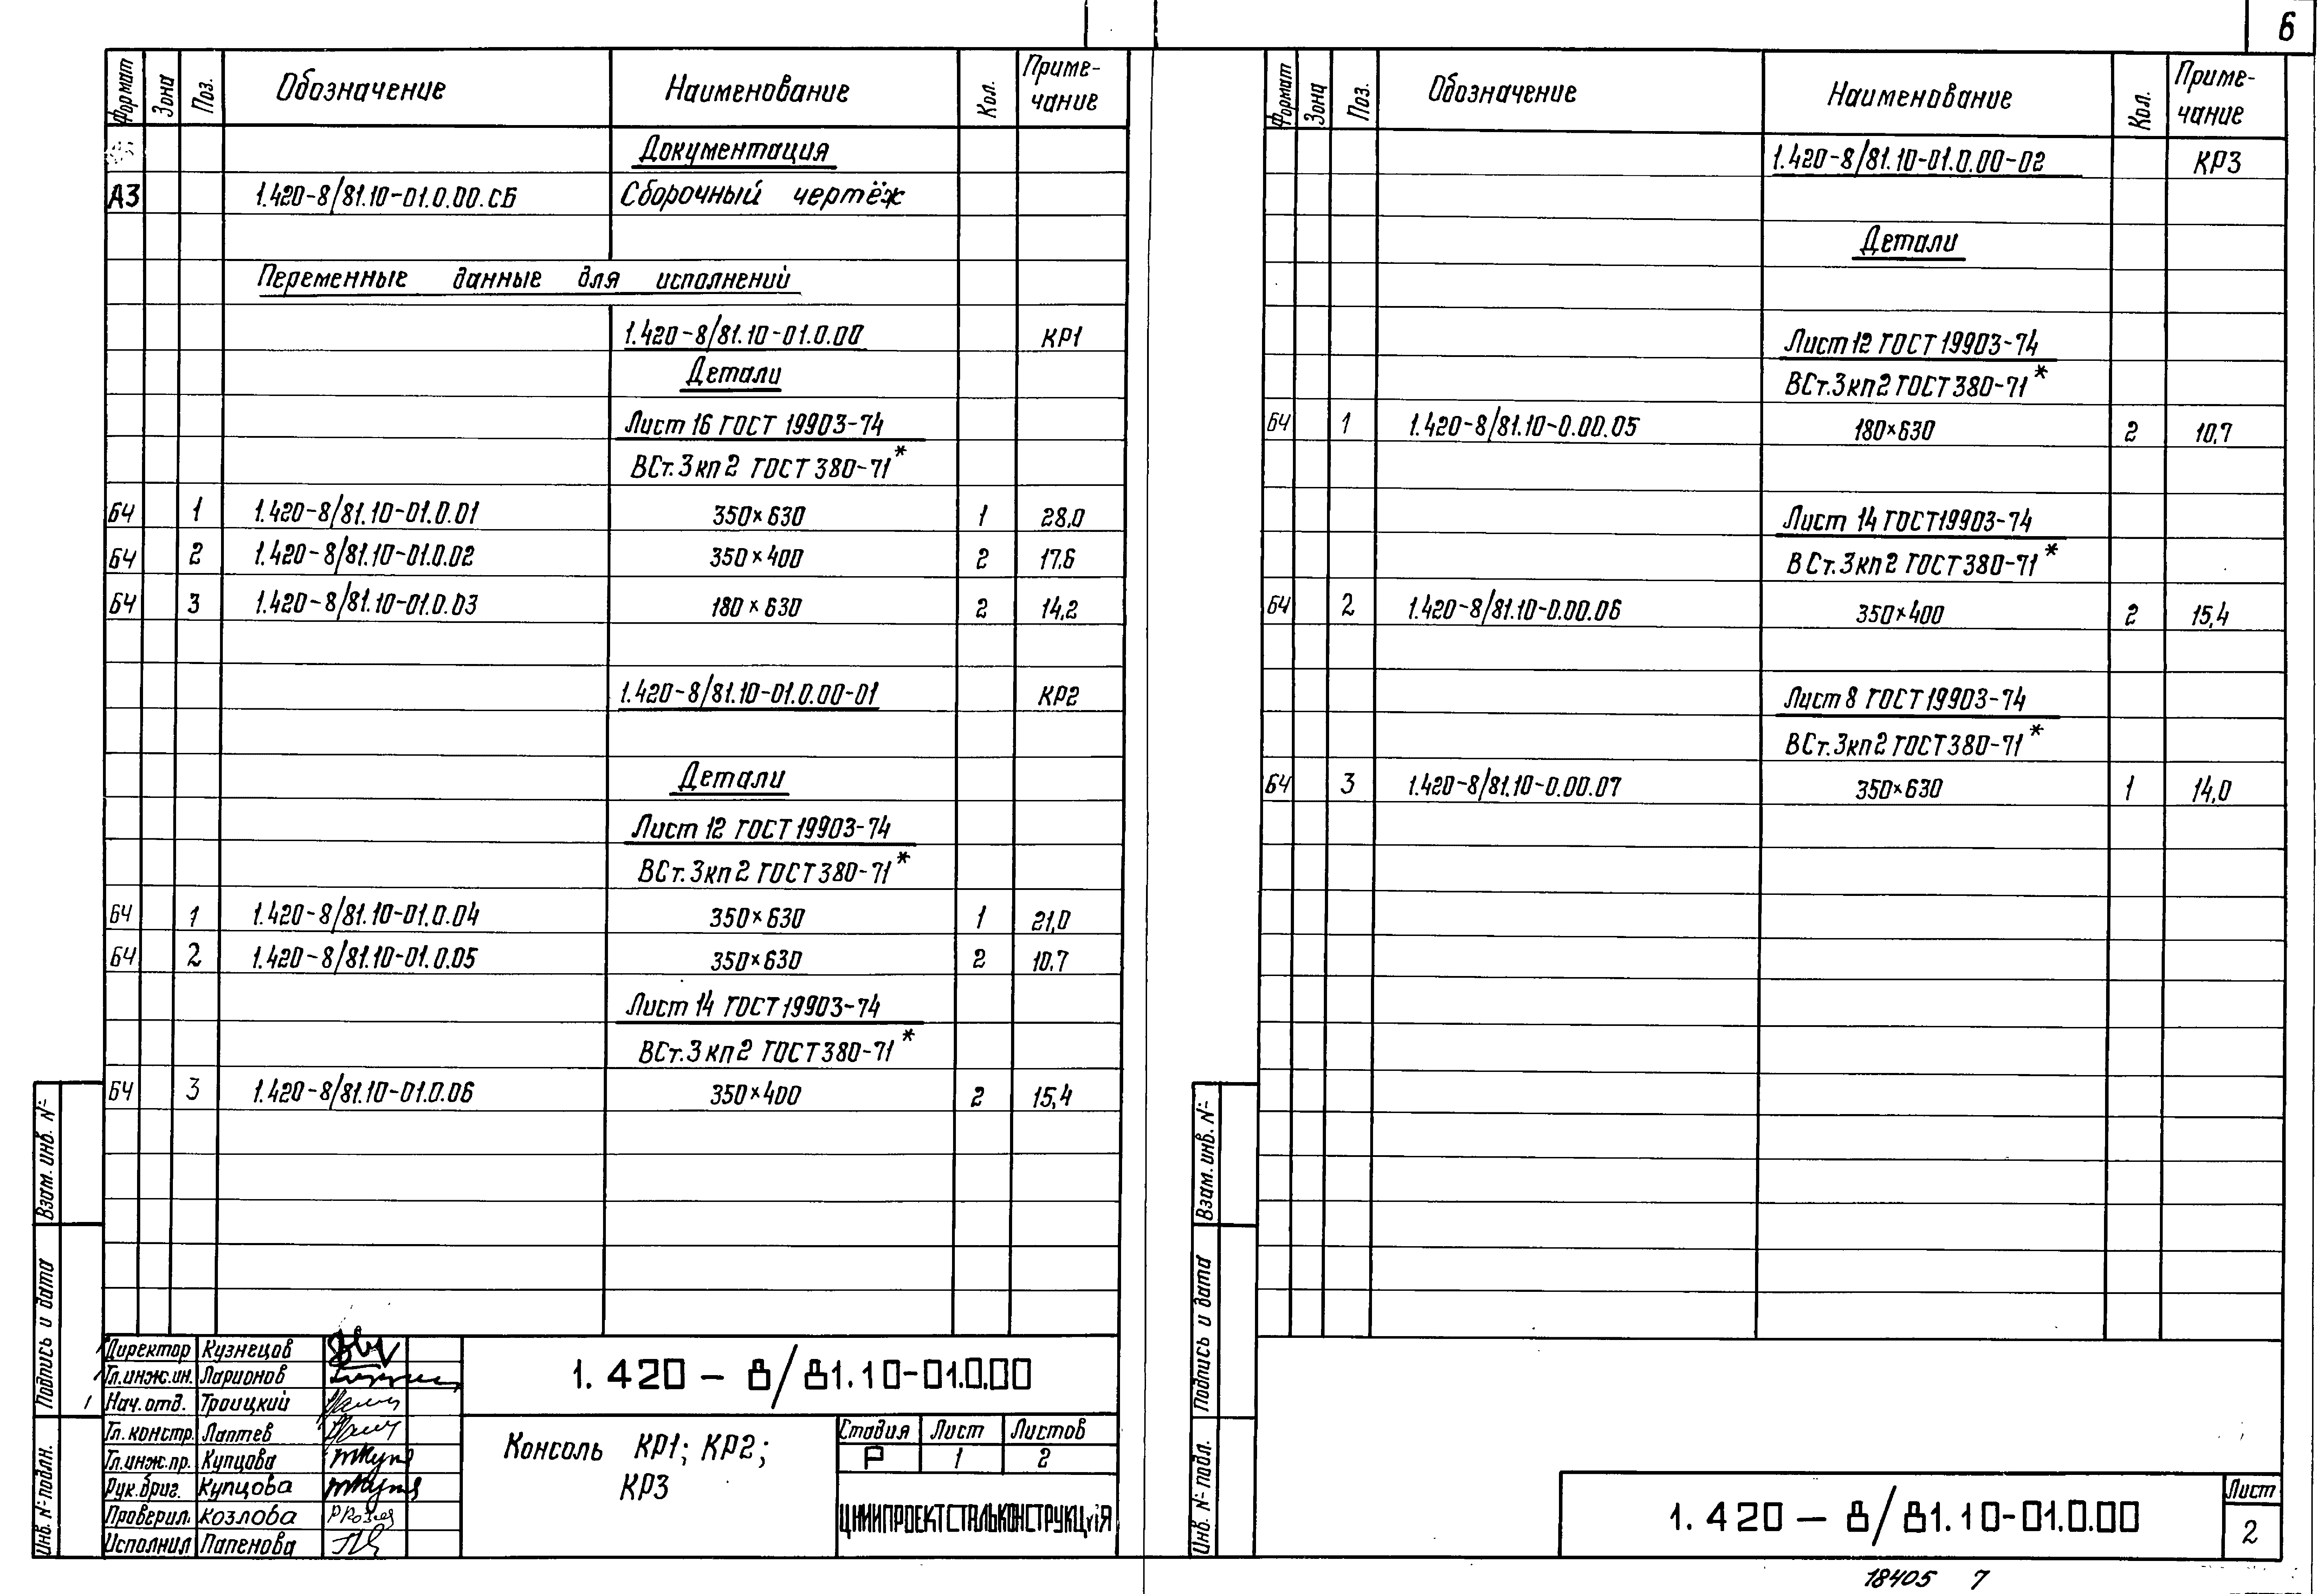 6
Формат Зона Поз. Обозначение Наименование Кол. Приме-
чание
Документация
А3 1.420-8/81.10-01.0.00.СБ Сборочный чертёж
Переменные данные для исполнений
1.420-8/81.10-01.0.00 КР1
Детали
Лист 16 ГОСТ 19903-74
ВСт.3кп2 ГОСТ 380-71*
БЧ 1 1.420-8/81.10-01.0.01 350×630 1 28,0
БЧ 2 1.420-8/81.10-01.0.02 350×400 2 17.6
БЧ 3 1.420-8/81.10-01.0.03 180×630 2 14,2
1.420-8/81.10-01.0.00-01 КР2
Детали
Лист 12 ГОСТ 19903-74
ВСт.3кп2 ГОСТ 380-71*
БЧ 1 1.420-8/81.10-01.0.04 350×630 1 21,0
БЧ 2 1.420-8/81.10-01.0.05 350×630 2 10.7
Лист 14 ГОСТ 19903-74
ВСт.3кп2 ГОСТ 380-71*
БЧ 3 1.420-8/81.10-01.0.06 350×400 2 15,4
Взам. инв. №
Подпись и дата
Инв. № подлн.
Директор Кузнецов
Гл.инж.ин. Ларионов
Нач.отд. Троицкий
Гл.констр. Лаптев
Гл.инж.пр. Купцова
Рук.бриг. Купцова
Проверил. Козлова
Исполнил Папенова
1.420-8/81.10-01.0.00
Консоль КР1; КР2;
КР3
Стадия Лист Листов
Р 1 2
ЦНИИПРОЕКТСТАЛЬКОНСТРУКЦИЯ
Формат Зона Поз. Обозначение Наименование Кол. Приме-
чание
1.420-8/81.10-01.0.00-02 КР3
Детали
Лист 12 ГОСТ 19903-74
ВСт.3кп2 ГОСТ 380-71*
БЧ 1 1.420-8/81.10-0.00.05 180×630 2 10,7
Лист 14 ГОСТ 19903-74
ВСт.3кп2 ГОСТ 380-71*
БЧ 2 1.420-8/81.10-0.00.06 350×400 2 15,4
Лист 8 ГОСТ 19903-74
ВСт.3кп2 ГОСТ 380-71*
БЧ 3 1.420-8/81.10-0.00.07 350×630 1 14,0
Взам. инв. №
Подпись и дата
Инв. № подл.
1.420-8/81.10-01.0.00
Лист
2
18405 7